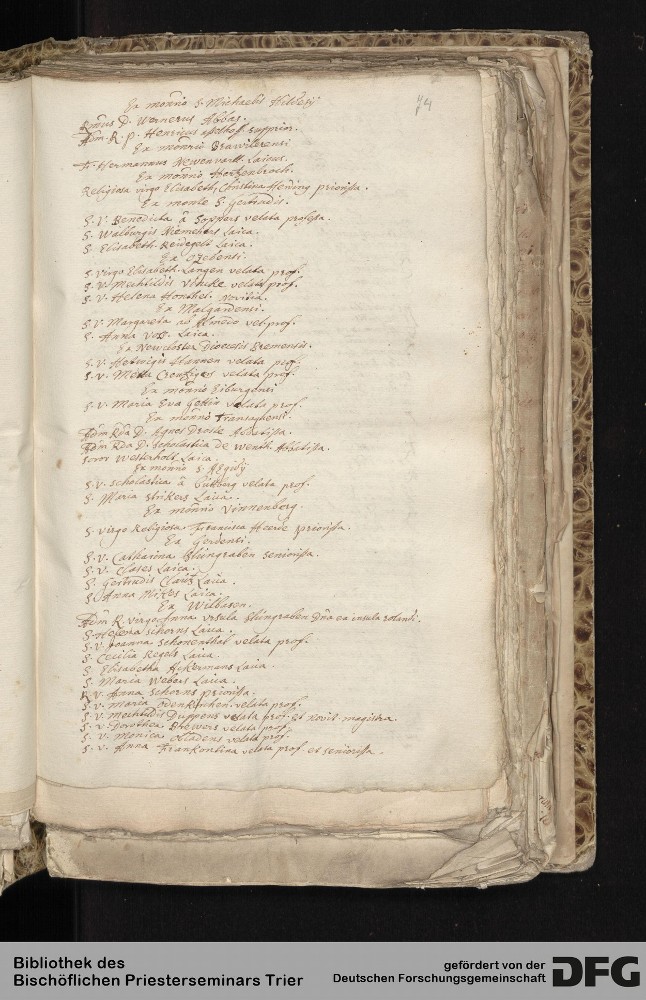 Ex monrio S. Michaelis Hildesij
74
Rmus D. Wernerus Abbas.
Adm. R. P. Henricus supprior.
Ex monrio Brawilerensi
Fr. Hermannus Newenvartt Laicus.
Ex monrio Hertzenbroch.
Religiosa virgo Elisabeth Christina Hening priorissa.
Ex monte S. Gertrudis.
S. V. Benedicta â Soppers velata professa.
S. Walburgis Niemehers Laica.
S. Elisabeth Reidegelt Laica.
Ex Ozebensi.
S. virgo Elisabeth Langen velata prof.
S. V. Mechtildis Vincke velata prof.
S. V. Helena Honthei. Novitia.
Ex Malgardensi.
S. V. Margareta ab Almedo vel. prof.
S. Anna Voss. Laica.
Ex Newcloster Diocesis Bremensis.
S. V. Hetwigis Hannen velata prof.
S. V. Metta velata prof.
Ex monrio Eiburgensi
S. V. Maria Eva velata prof.
Ex monrio Transaghensi.
Adm Rda D. Agnes Droste Abbatissa.
Adm Rda D. Scholastica de Wenth. Abbatissa.
Soror Westerholt Laica.
Ex monrio S. Aegidij
S. V. Scholastica â velata prof.
S. Maria Strikers Laica.
Ex monrio Vinnenberg.
S. virgo Religiosa Francisca Heerde priorissa.
Ex Gerdensi.
S. V. Catharina Stningraben seniorissa.
S. V. Clases Laica.
S. Gertrudis Laica.
S. Anna Laica.
Ex Wilbasen.
Adm R. virgo Anna Ursula Stningraben Dna ex insula rolandi.
S. Helena Schorns Laica.
S. V. Joanna Schonenthal velata prof.
S. Cecilia Kegels Laica.
S. Elisabetha Ackermans Laica.
S. Maria Webers Laica.
R. V. Anna Schorns priorissa.
S. V. Maria Odenkirchen velata prof.
S. V. Mechtildis Duppens velata prof. et novit. magistra.
S. V. Dorothea Brewers velata prof.
S. V. Monica velata prof.
S. V. Anna Frankontina velata prof. et seniorissa.
Bibliothek des
Bischöflichen Priesterseminars Trier
gefördert von der
Deutschen Forschungsgemeinschaft
DFG